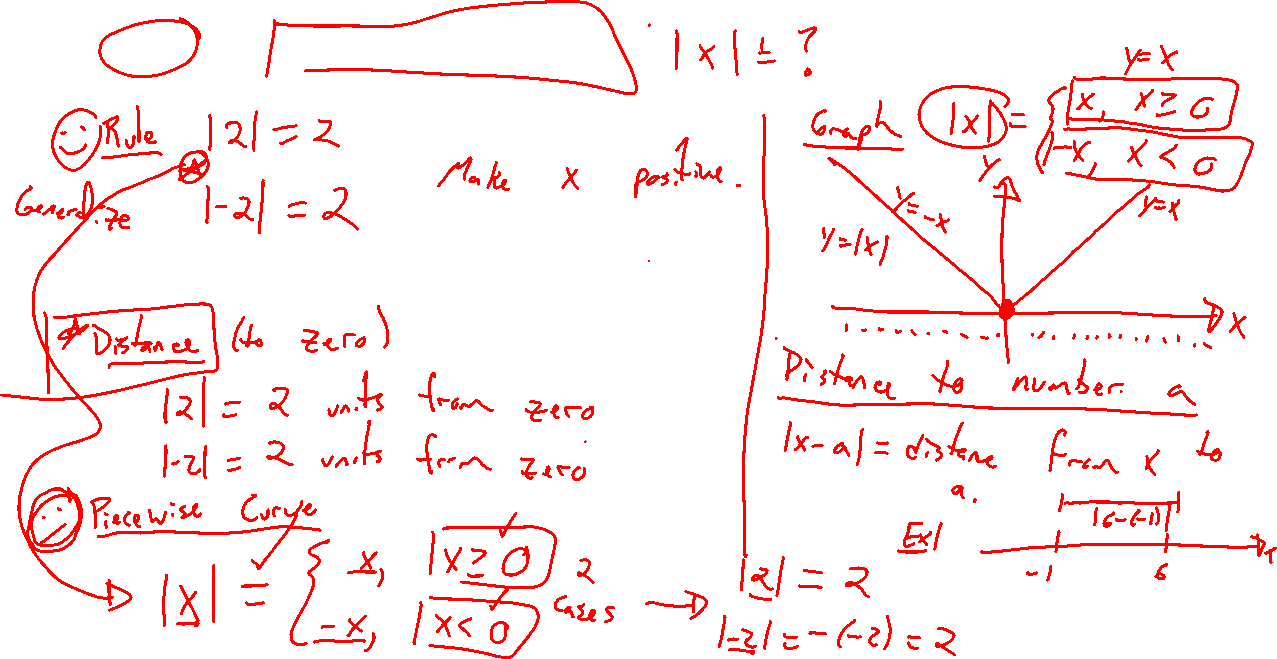 |x| = ?
Rule |2| = 2
Generalize |-2| = 2
Make x positive.
Distance (to zero)
|2| = 2 units from zero
|-2| = 2 units from zero
Piecewise Curve
|x| = { x, x ≥ 0
-x, x < 0
2 cases
|2| = 2
|-2| = -(-2) = 2
Graph
|x| = { x, x ≥ 0
-x, x < 0
y = x
y
y = -x
y = x
y = |x|
x
Distance to number a
|x-a| = distane from x to
a.
Ex1
|6-(-1)|
-1 6 x